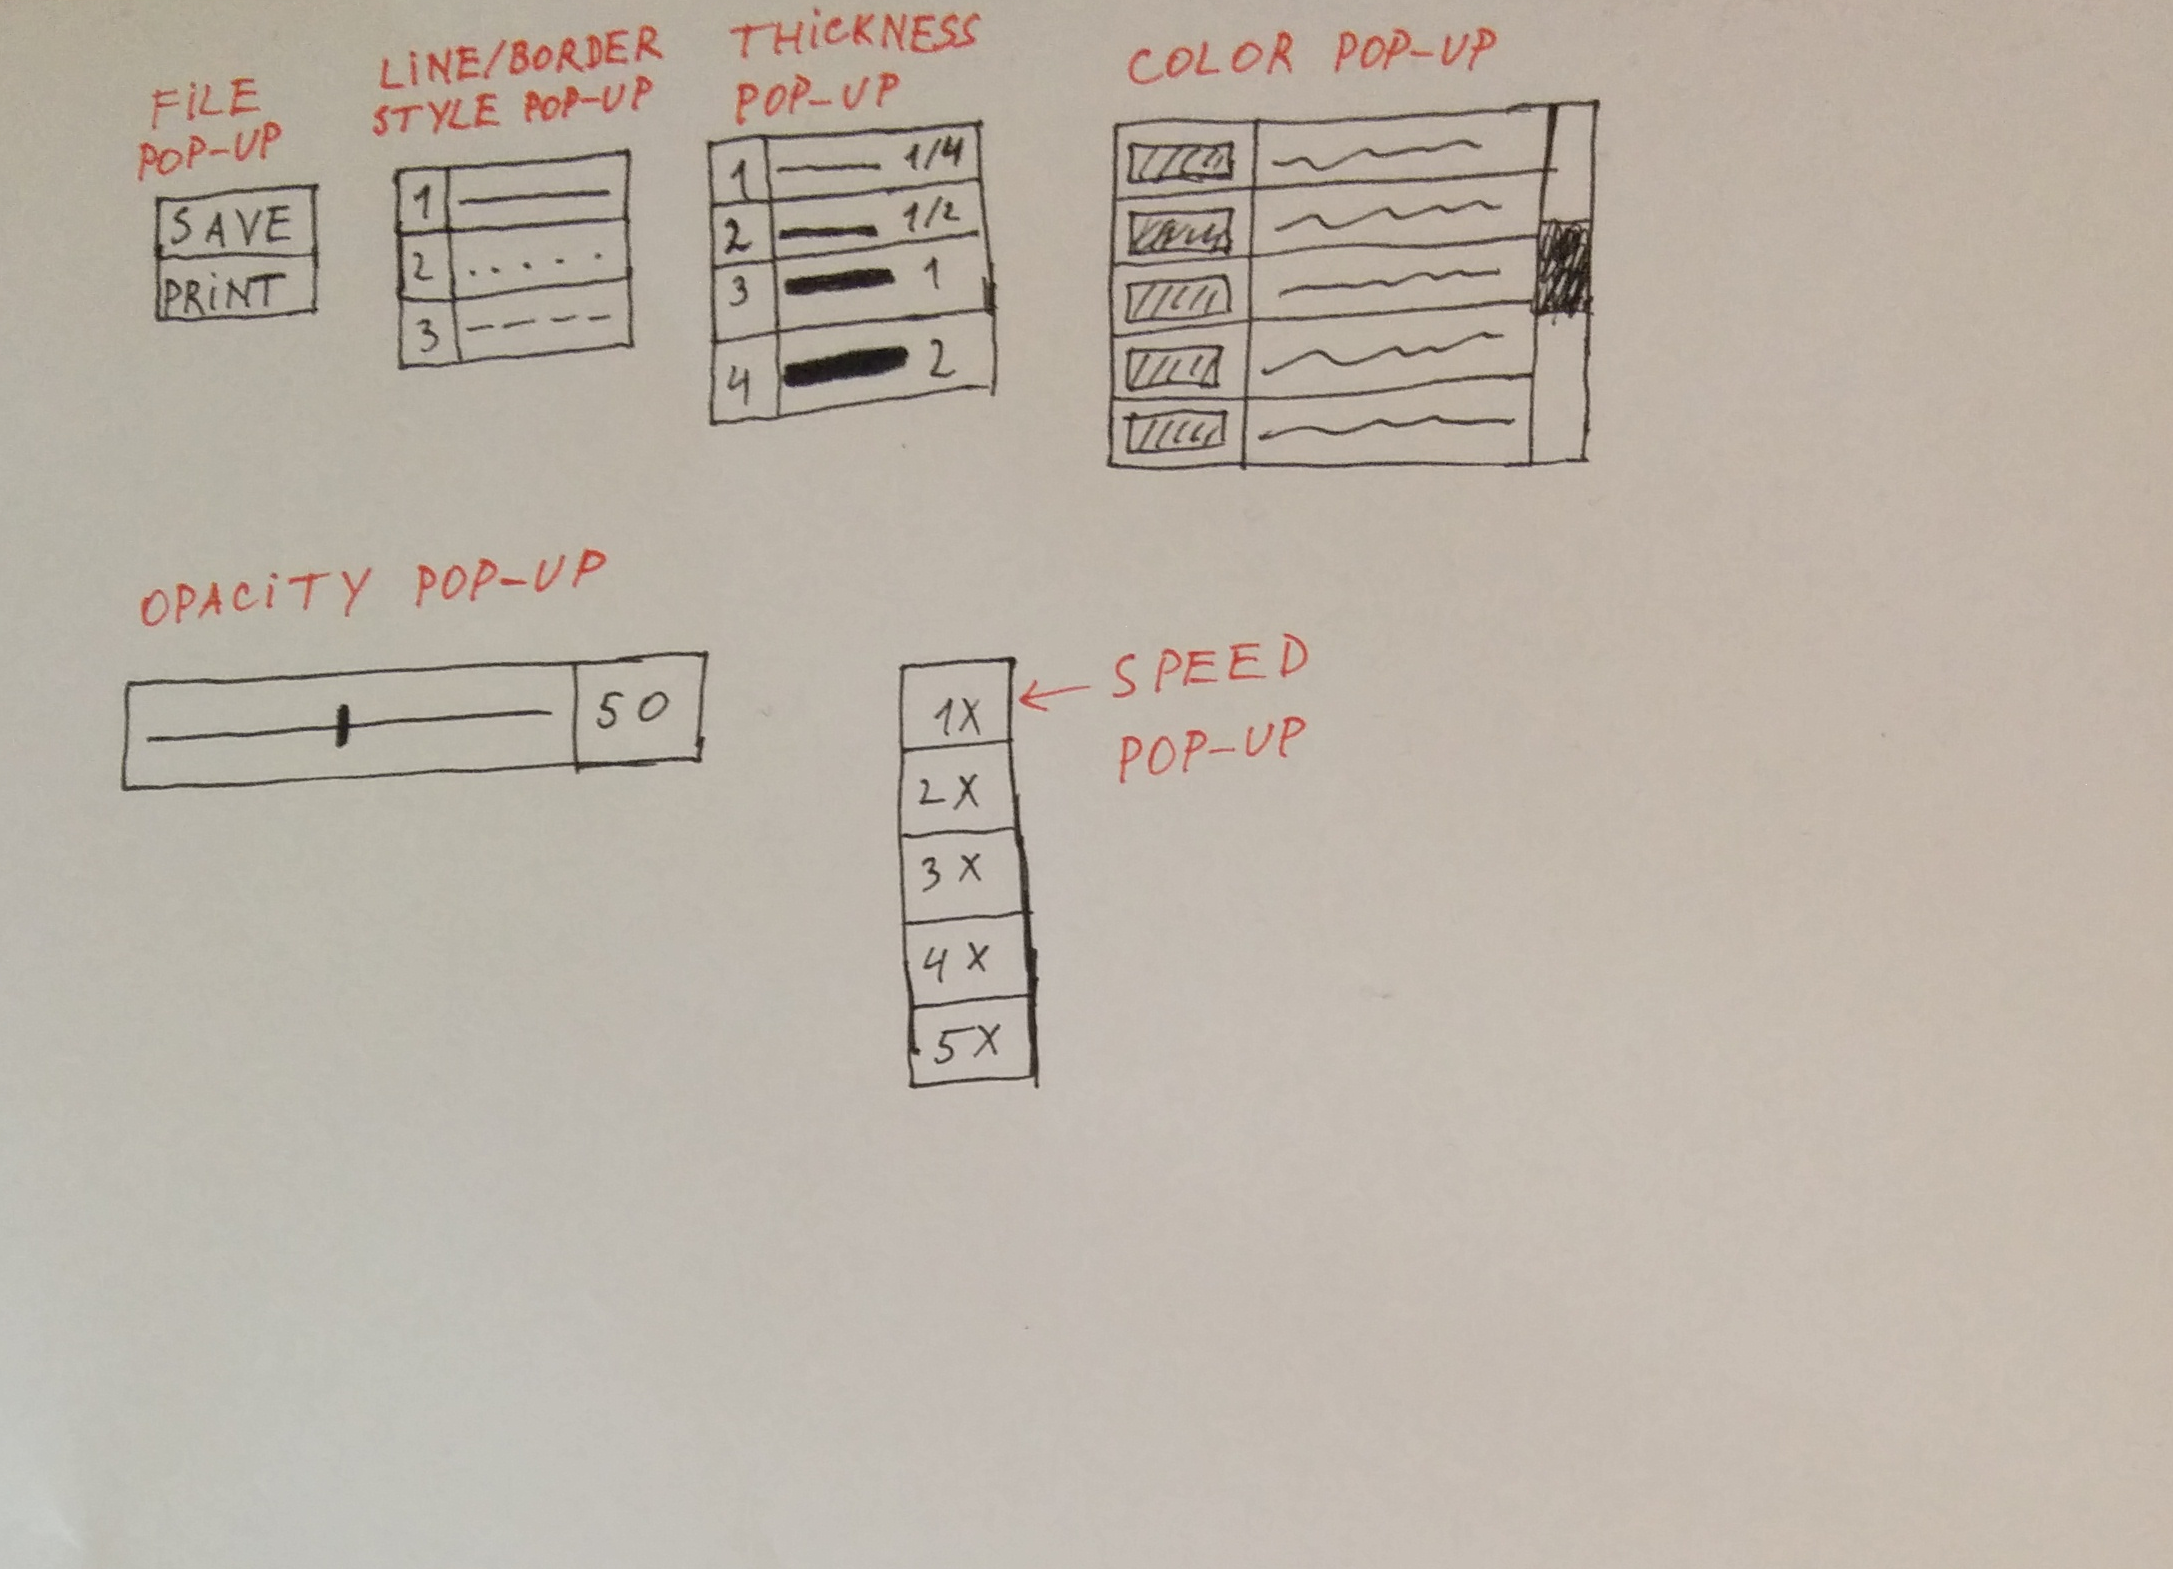 FiLE
POP-UP
SAVE
PRiNT
LiNE/BORDER
STYLE POP-UP
1
2
3
THiCKNESS
POP-UP
1 1/4
2 1/2
3 1
4 2
COLOR POP-UP
OPACiTY POP-UP
50
1X
2X
3X
4X
5X
SPEED
POP-UP